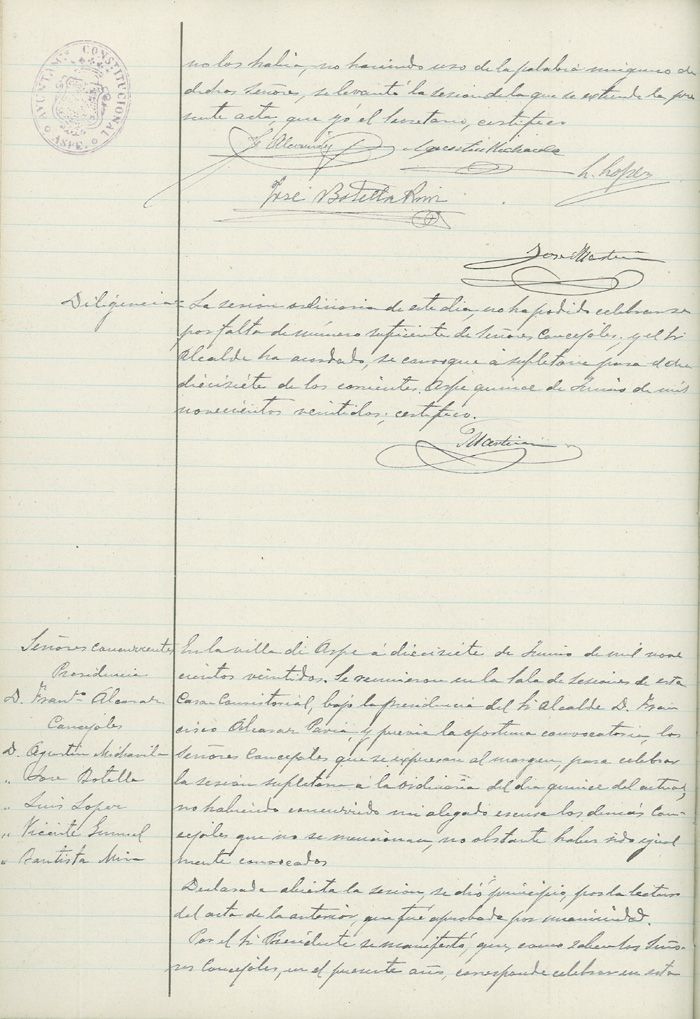 AYUNTAM. CONSTITUCIONAL
ASPE
no los habia, no haciendo uso de la palabra ninguno de
dichos señores, se levantó la sesion de la que se extiende la pre
sente acta, que yó el Secretario, certifico
Agustin Michavila
L. Lopez
José Botella
José Martin
Diligencia = La sesion ordinaria de este dia, no ha podido celebrarse
por falta de número suficiente de Señores Concejales, y el Sr
Alcalde ha acordado, se convoque á supletoria para el dia
diecisiéte de los corrientes. Aspe quince de Junio de mil
novecientos veintidos; certifico.
Señores concurrentes
Presidencia
D. Franco. Alcaraz
Concejales
D. Agustin Michavila
" José Botella
" Luis Lopez
" Vicente Gumiel
" Bautista Mira
En la villa de Aspe á diecisiete de Junio de mil nove
cientos veintidos. Se reunieron en la Sala de sesiones de esta
Casa Consistorial, bajo la presidencia del Sr Alcalde D. Fran
cisco Alcaraz Pavia y previa la oportuna convocatoria, los
Señores Concejales que se expresan al margen, para celebrar
la sesion supletoria á la ordinaria del dia quince del actual,
no habiendo concurrido ni alegado escusa los demás Con
cejales que no se mencionan, no obstante haber sido igual
mente convocados
Declarada abierta la sesion se dió principio, por la lectura
del acta de la anterior, que fué aprobada por unanimidad.
Por el Sr Presidente se manifestó, que, como saben los Seño
res Concejales, en el presente año, corresponde celebrar en esta